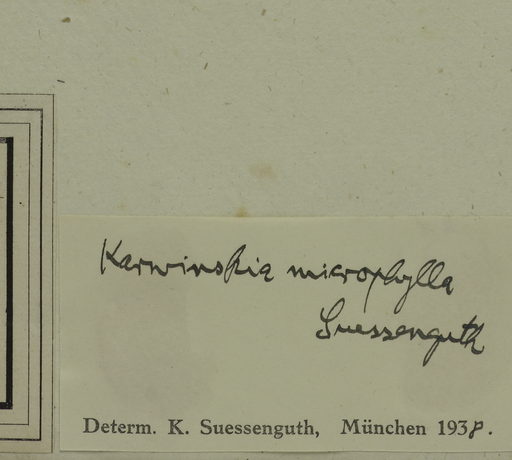 Karwinskia microphylla
Suessenguth
Determ. K. Suessenguth, München 1938.